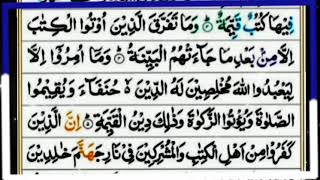 فِيْهَا كُتُبٌ قَيِّمَةٌ ۝ وَمَا تَفَرَّقَ الَّذِيْنَ اُوْتُوا الْكِتٰبَ
اِلَّا مِنْۢ بَعْدِ مَا جَآءَتْهُمُ الْبَيِّنَةُ ۝ وَمَآ اُمِرُوْٓا اِلَّا
لِيَعْبُدُوا اللّٰهَ مُخْلِصِيْنَ لَهُ الدِّيْنَ ۙ حُنَفَآءَ وَيُقِيْمُوا
الصَّلٰوةَ وَيُؤْتُوا الزَّكٰوةَ وَذٰلِكَ دِيْنُ الْقَيِّمَةِ ۝ اِنَّ الَّذِيْنَ
كَفَرُوْا مِنْ اَهْلِ الْكِتٰبِ وَالْمُشْرِكِيْنَ فِيْ نَارِ جَهَنَّمَ خٰلِدِيْنَ